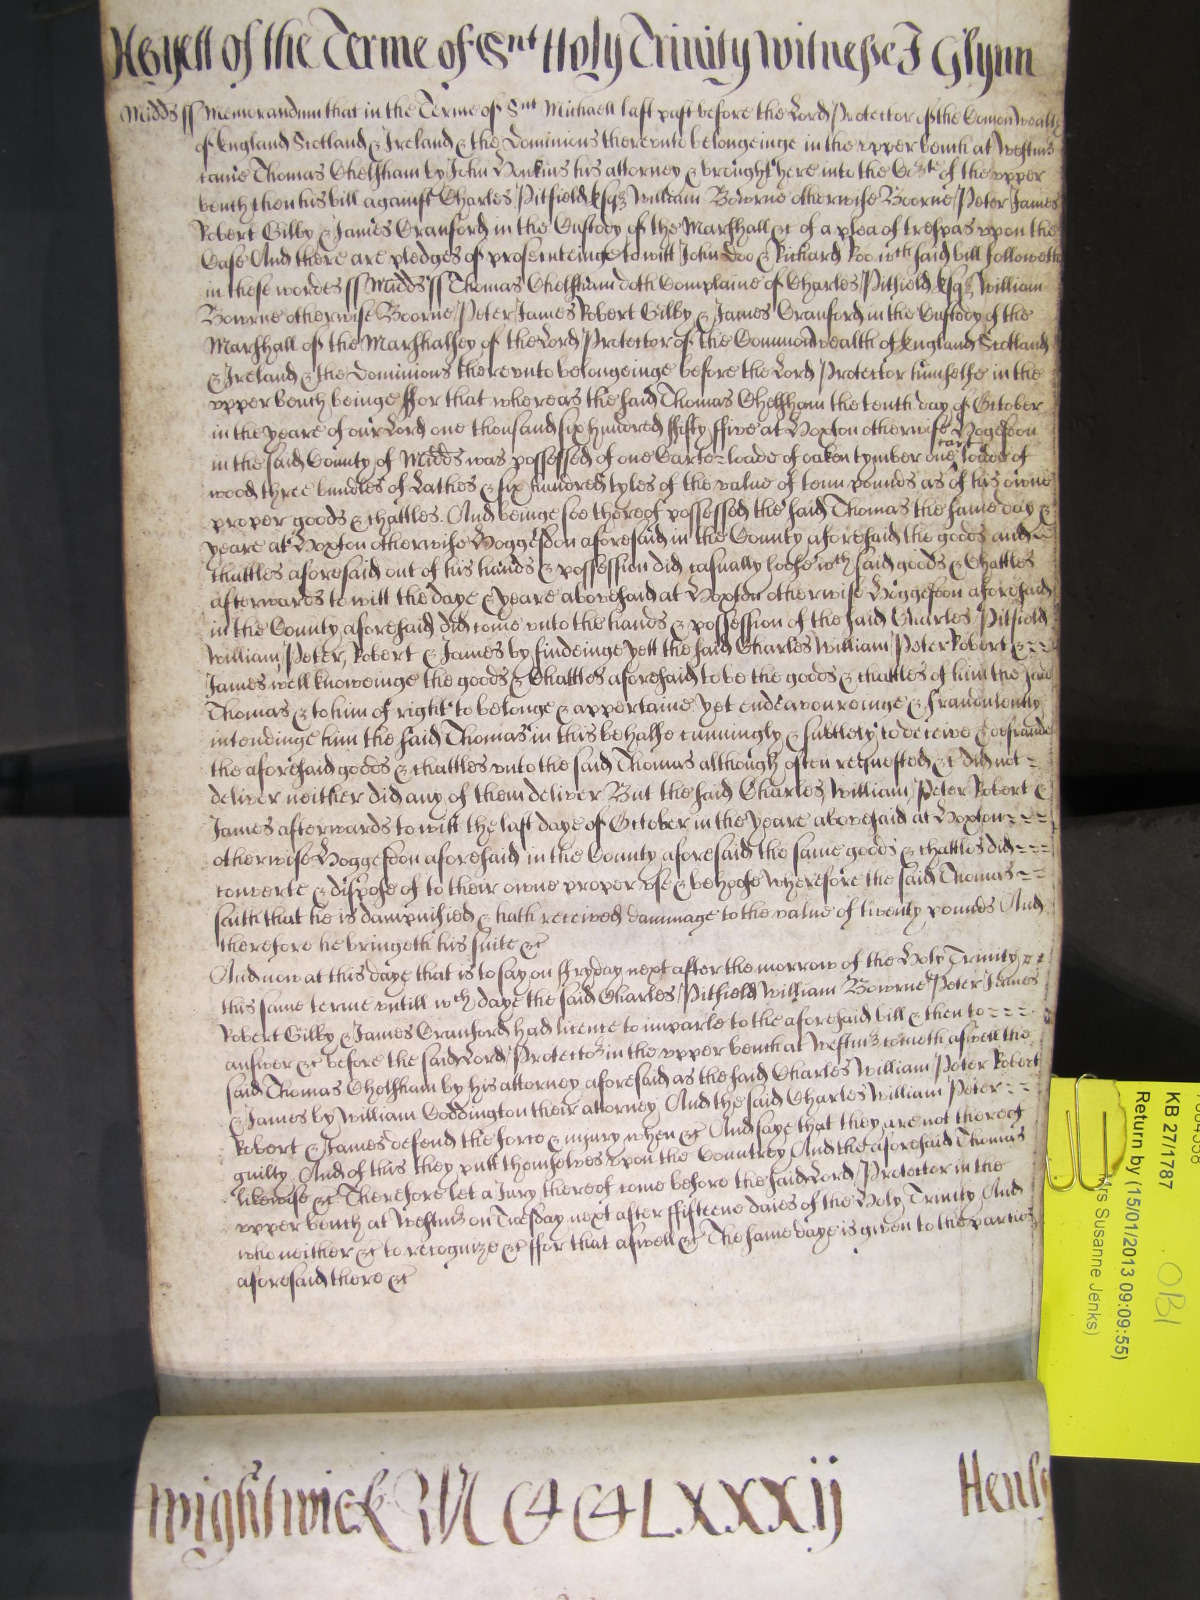 As yett of the Terme of Snt Holy Trinity Witnesse J Glynn
Midds ss Memorandum that in the Terme of Snt Michaell last past before the Lord Protector of the Comonwealth
of England Scotland & Ireland & the Dominions thereunto belongeinge in the upper bench at Westmr
came Thomas Chelsham by John Jenkins his attorney & brought here into the Court of the upper
bench then his bill against Charles Pitfield Esqr William Bowrne otherwise Boorne Peter James
Robert Gilby & James Cranford in the Custody of the Marshall &c of a plea of trespas upon the
Case And there are pledges of prosecuteinge to witt John Doo & Richard Roo wch said bill followeth
in these wordes ss Midds ss Thomas Chelsham doth Complaine of Charles Pitfield Esqr William
Bowrne otherwise Boorne Peter James Robert Gilby & James Cranford in the Custody of the
Marshall of the Marshalsey of the Lord Protector of the Commonwealth of England Scotland
& Ireland & the Dominions thereunto belongeinge before the Lord Protector himselfe in the
upper bench beinge ffor that whereas the said Thomas Chelsham the tenth day of October
in the yeare of our Lord one thousand six hundred ffifty ffive at Hoxton otherwise Hogesdon
in the said County of Midds was possessed of one Carte loade of oaken tymber one cart loade of
wood three bundles of Lathes & six hundred tyles of the value of tenn pounds as of his owne
proper goods & chattles. And beinge soe thereof possessed the said Thomas the same day &
yeare at Hoxton otherwise Hoggesdon aforesaid in the County aforesaid the goods and
chattles aforesaid out of his hands & possession did casually loose wch said goods & Chattles
afterwards to witt the daye & yeare abovesaid at Hoxton otherwise Hoggesdon aforesaid
in the County aforesaid did come unto the hands & possession of the said Charles Pitfield
William Peter, Robert & James by findeinge yett the said Charles William Peter Robert &
James well knoweinge the goods & Chattles aforesaid to be the goods & chattles of him the said
Thomas & to him of right to belonge & appertaine yet endeavoureinge & fraudulently
intendinge him the said Thomas in this behalfe cunningly & subtlely to deceive & defraude
the aforesaid goods & chattles unto the said Thomas although often requested &c did not
deliver neither did any of them deliver But the said Charles William Peter Robert &
James afterwards to witt the last daye of October in the yeare abovesaid at Hoxton
otherwise Hoggesdon aforesaid in the County aforesaid the same goods & chattles did
converte & dispose of to their owne proper use & behoofe Wherefore the said Thomas
saith that he is dampnified & hath received dammage to the value of twenty pounds And
therefore he bringeth his suite &c
And now at this daye that is to say on ffryday next after the morrow of the Holy Trinity
this same terme untill wch daye the said Charles Pitfield William Bowrne Peter James
Robert Gilby & James Cranford had licence to imparle to the aforesaid bill & then to
answer &c before the said Lord Protector in the upper bench at Westmr cometh aswell the
said Thomas Chelsham by his attorney aforesaid as the said Charles William Peter Robert
& James by William Coddington their attorney And the said Charles William Peter
Robert & James defend the force & injury when &c And saye that they are not thereof
guilty And of this they putt themselves upon the Countrey And the aforesaid Thomas
likewise &c Therefore let a Jury thereof come before the said Lord Protector in the
upper bench at Westmr on Tuesday next after ffifteene daies of the Holy Trinity And
who neither &c to recognize &c ffor that aswell &c The same daye is given to the parties
aforesaid there &c
Wightwick
LXXXij
KB 27/1787
Return by (15/01/2013 09:09:55)
Mrs Susanne Jenks)
OB1